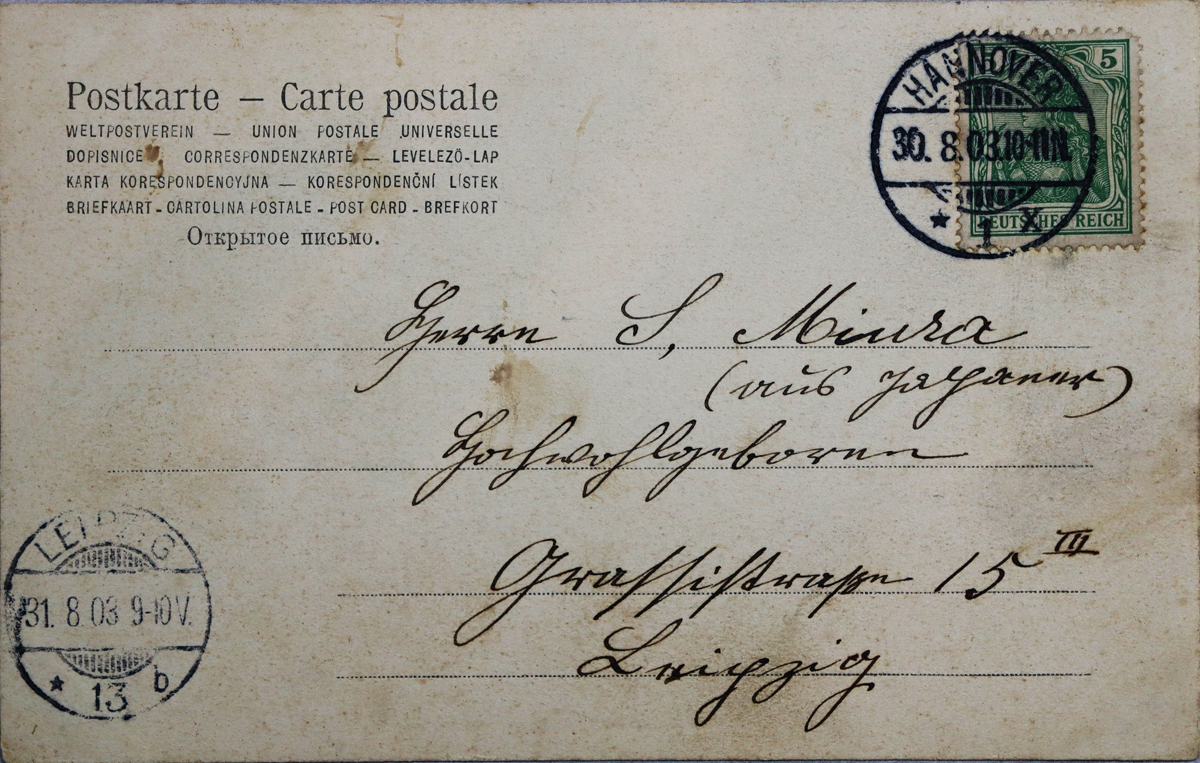 Postkarte – Carte postale
WELTPOSTVEREIN — UNION POSTALE UNIVERSELLE
DOPISNICE CORRESPONDENZKARTE — LEVELEZŐ-LAP
KARTA KORESPONDENCYJNA — KORESPONDENČNÍ LÍSTEK
BRIEFKAART - CARTOLINA POSTALE - POST CARD - BREFKORT
Открытое письмо.
5
HANNOVER
30. 8. 03. 10-11 N.
* 1 X
DEUTSCHES REICH
Herrn S. Miura
(aus Japaner)
Hochwohlgeboren
Grassistraße 15 III
Leipzig
LEIPZIG
31. 8. 03 9-10 V.
* 13 b